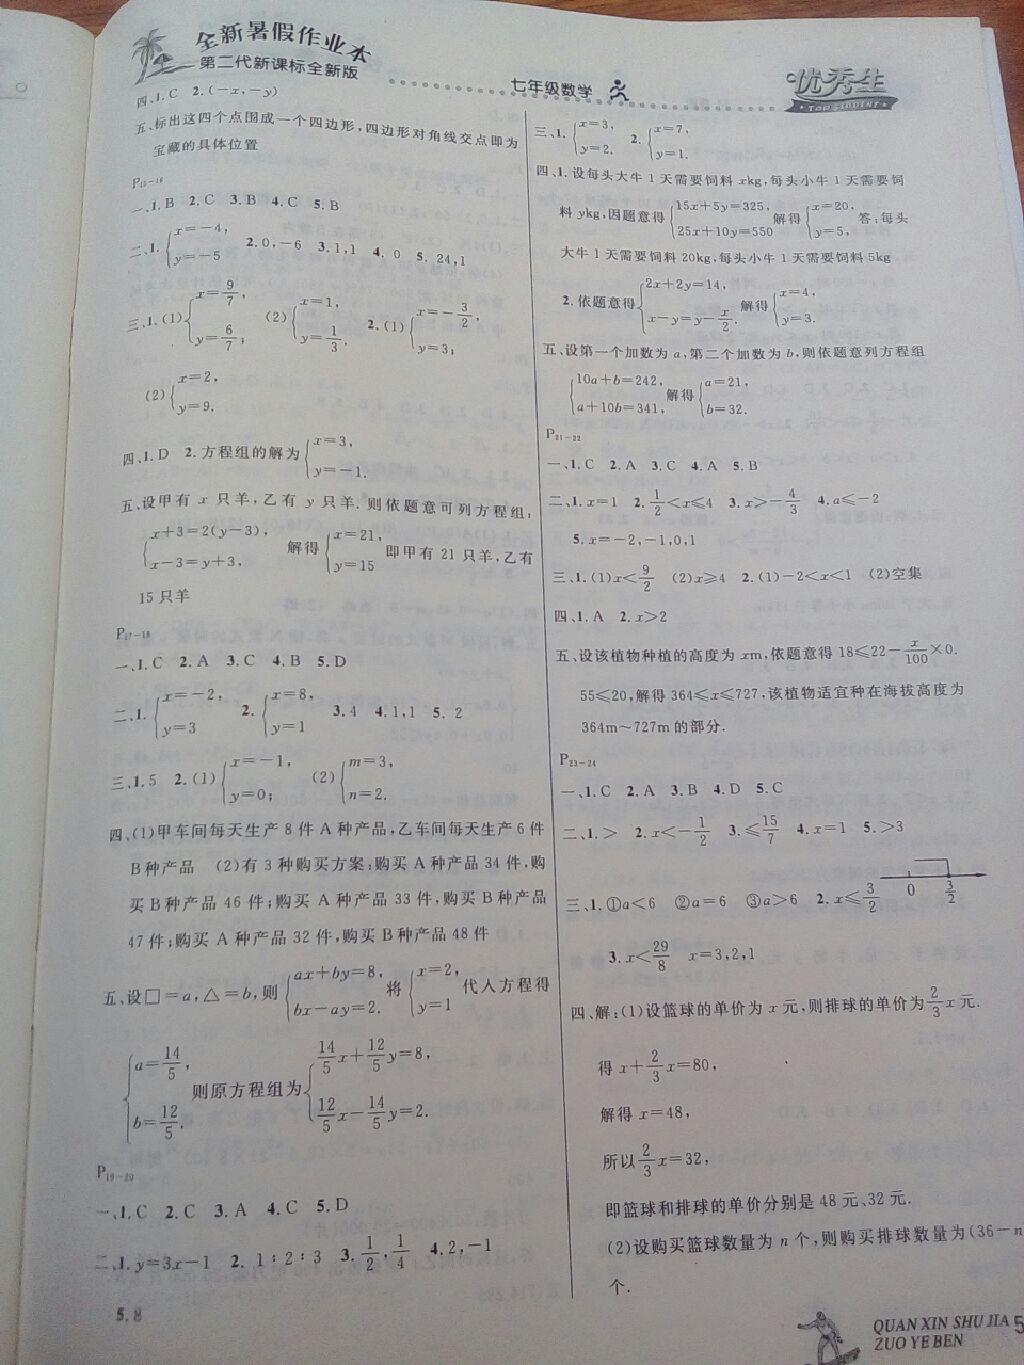 全新暑假作业本
第二代新课标全新版
七年级数学
优秀生
TOP STUDENT
四、1.C 2.(-x,-y)
五、标出这四个点围成一个四边形,四边形对角线交点即为
宝藏的具体位置
P15-16
一、1.B 2.C 3.B 4.C 5.B
二、1.{x=-4, y=-5 2.0,-6 3.1,1 4.0 5.24,1
三、1.(1){x=9/7, y=6/7; (2){x=1, y=1/3. 2.(1){x=-3/2, y=3;
(2){x=2, y=9.
四、1.D 2.方程组的解为{x=3, y=-1.
五、设甲有 x 只羊,乙有 y 只羊.则依题意可列方程组:
{x+3=2(y-3), x-3=y+3, 解得{x=21, y=15 即甲有 21 只羊,乙有
15 只羊
P17-18
一、1.C 2.A 3.C 4.B 5.D
二、1.{x=-2, y=3 2.{x=8, y=1 3.4 4.1,1 5.2
三、1.5 2.(1){x=-1, y=0; (2){m=3, n=2.
四、(1)甲车间每天生产 8 件 A 种产品,乙车间每天生产 6 件
B种产品 (2)有 3 种购买方案;购买 A 种产品 34 件,购
买 B种产品 46 件;购买 A 种产品 33 件,购买 B种产品
47 件;购买 A 种产品 32 件,购买 B种产品 48 件
五、设□=a,△=b,则{ax+by=8, bx-ay=2. 将{x=2, y=1 代人方程得
{a=14/5, b=12/5. 则原方程组为{14/5x+12/5y=8, 12/5x-14/5y=2.
P19-20
一、1.C 2.C 3.A 4.C 5.D
二、1.y=3x-1 2.1:2:3 3.1/2,1/4 4.2,-1
5.8
三、1.{x=3, y=2. 2.{x=7, y=1.
四、1.设每头大牛 1 天需要饲料 xkg,每头小牛 1 天需要饲
料 ykg,因题意得{15x+5y=325, 25x+10y=550 解得{x=20, y=5, 答:每头
大牛 1 天需要饲料 20kg,每头小牛 1 天需要饲料 5kg
2.依题意得{2x+2y=14, x-y=y-x/2. 解得{x=4, y=3.
五、设第一个加数为 a,第二个加数为 b,则依题意列方程组
{10a+b=242, a+10b=341, 解得{a=21, b=32.
P21-22
一、1.C 2.A 3.C 4.A 5.B
二、1.x=1 2.1/2<x≤4 3.x>-4/3 4.a≤-2
5.x=-2,-1,0,1
三、1.(1)x<9/2 (2)x≥4 2.(1)-2<x<1 (2)空集
四、1.A 2.x>2
五、设该植物种植的高度为 xm,依题意得 18≤22-x/100×0.
55≤20,解得 364≤x≤727,该植物适宜种在海拔高度为
364m~727m 的部分.
P23-24
一、1.C 2.A 3.B 4.D 5.C
二、1.> 2.x<-1/2 3.≤15/7 4.x=1 5.>3
0 3/2
三、1.①a<6 ②a=6 ③a>6 2.x≤3/2
3.x<29/8 x=3,2,1
四、解:(1)设篮球的单价为 x 元,则排球的单价为2/3x 元.
得 x+2/3x=80,
解得 x=48,
所以2/3x=32,
即篮球和排球的单价分别是 48 元、32 元.
(2)设购买篮球数量为 n 个,则购买排球数量为(36-n
个.
QUAN XIN SHU JIA
ZUO YE BEN
5